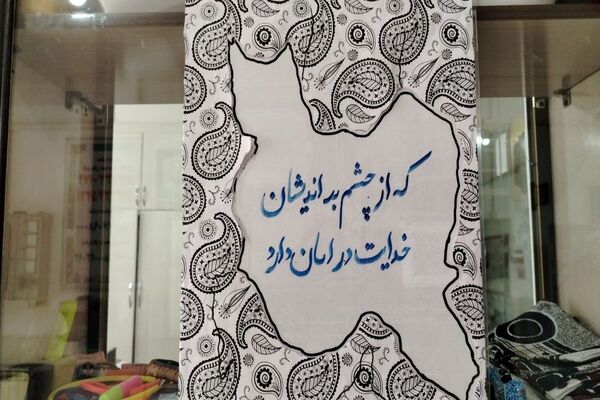 که از چشم بد اندیشان
خدایت در امان دارد